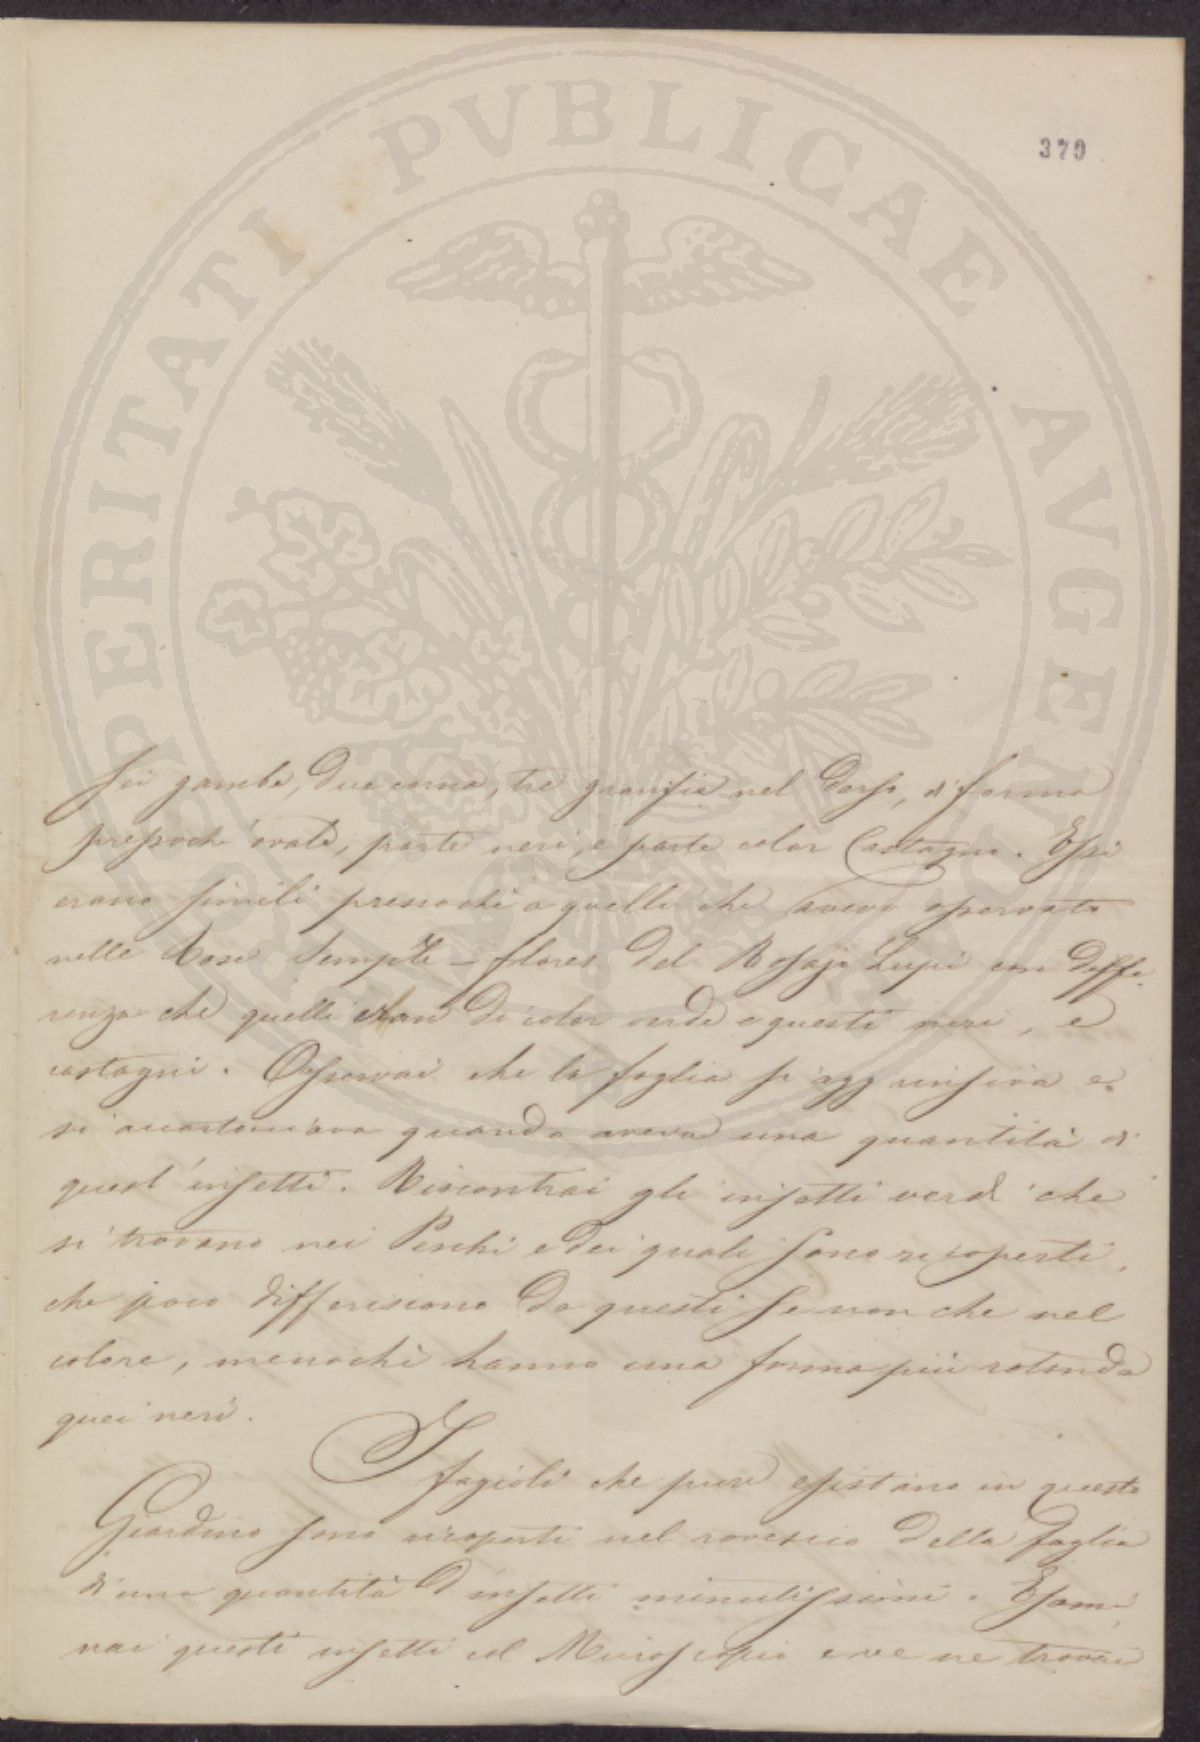 379
PROSPERITATI PVBLICAE AVGENDAE
Sei gambe, due corna, tre granfie nel dorso, di forma
pressoche ovale, parte neri, e parte color Castagno. Essi
erano simili pressochè a quelli che avevo osservato
nelle Rose Semple-flores del Rosajo Lupi con diffe-
renza che quelli eran di color verde e questi neri, e
castagni. Osservai che la foglia si aggrinsiva e
si accartocciava quando aveva una quantità di
quest'insetti. Riscontrai gli insetti verdi che
si trovano nei Peschi e dei quali sono ricoperti,
che poco differiscono da questi se non che nel
colore, menochè hanno una forma più rotonda
quei neri.
I fagioli che pure esistano in questo
Giardino sono ricoperti nel rovescio della foglia
di una quantità d'insetti minutissimi. Esami-
nai questi insetti col Microscopio e ve ne trovai